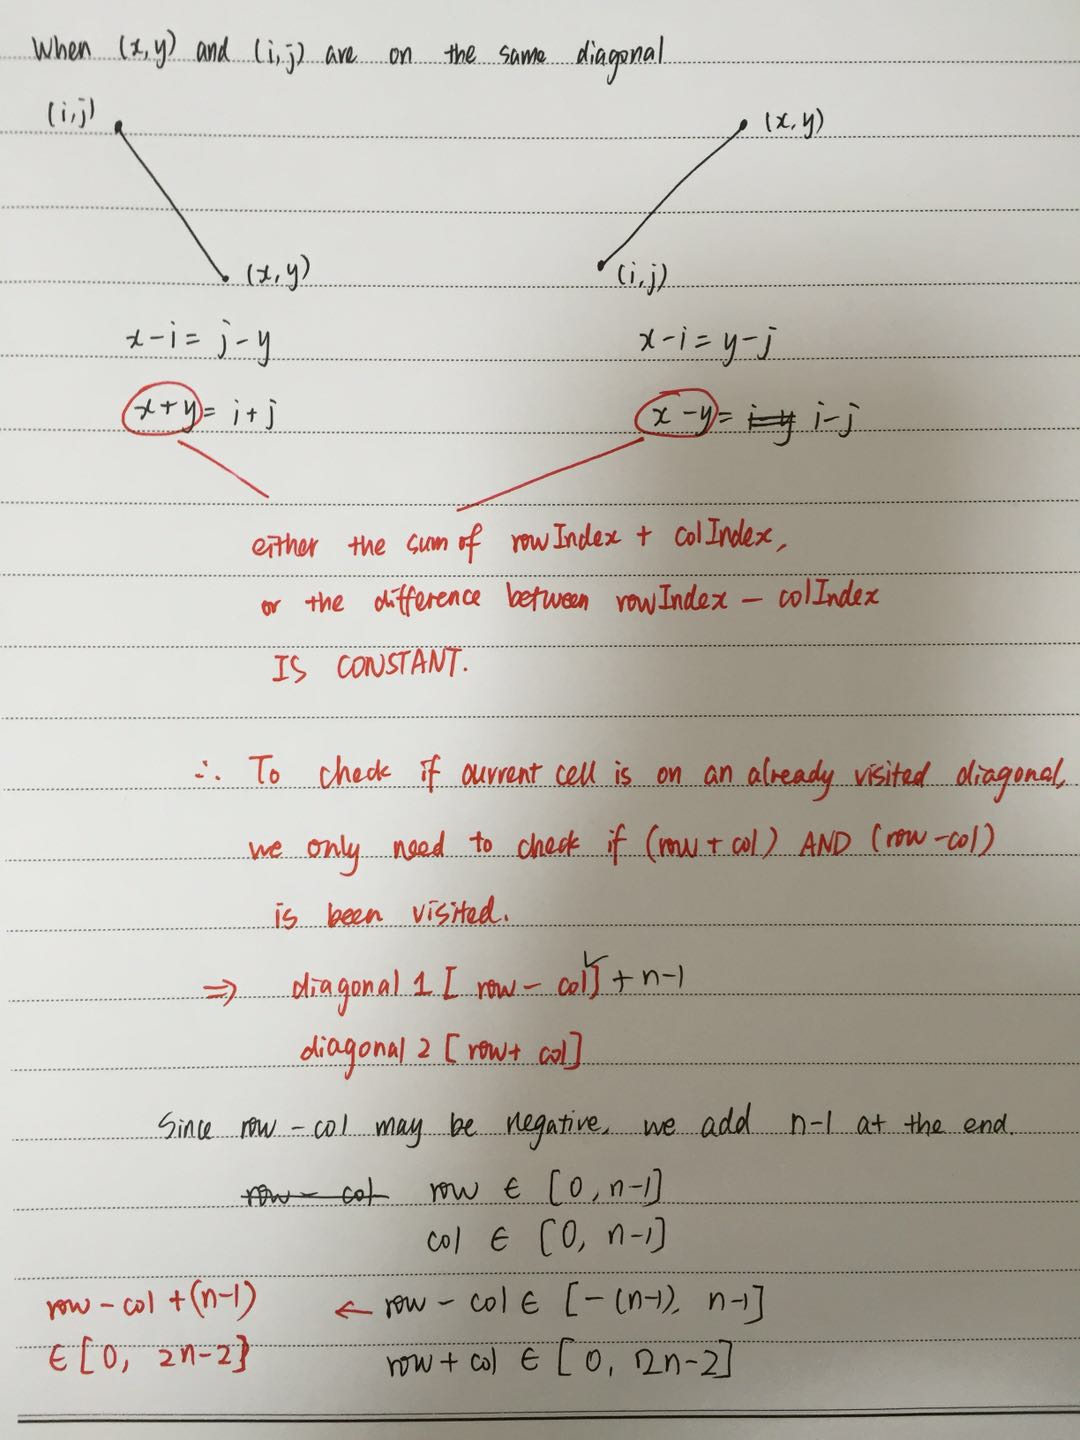 When (x,y) and (i,j) are on the same diagonal
(i,j)
(x,y)
(x,y)
(i,j)
x-i = j-y
x-i = y-j
x+y = i+j
x-y = i-y i-j
either the sum of rowIndex + colIndex,
or the difference between rowIndex - colIndex
IS CONSTANT.
∴ To check if current cell is on an already visited diagonal,
we only need to check if (row + col) AND (row-col)
is been visited.
⇒ diagonal 1 [ row - col] + n-1
diagonal 2 [row+ col]
Since row - col may be negative, we add n-1 at the end.
row - col row ∈ [0, n-1]
col ∈ [0, n-1]
row - col +(n-1) ← row - col ∈ [-(n-1), n-1]
∈ [0, 2n-2] row + col ∈ [0, 2n-2]